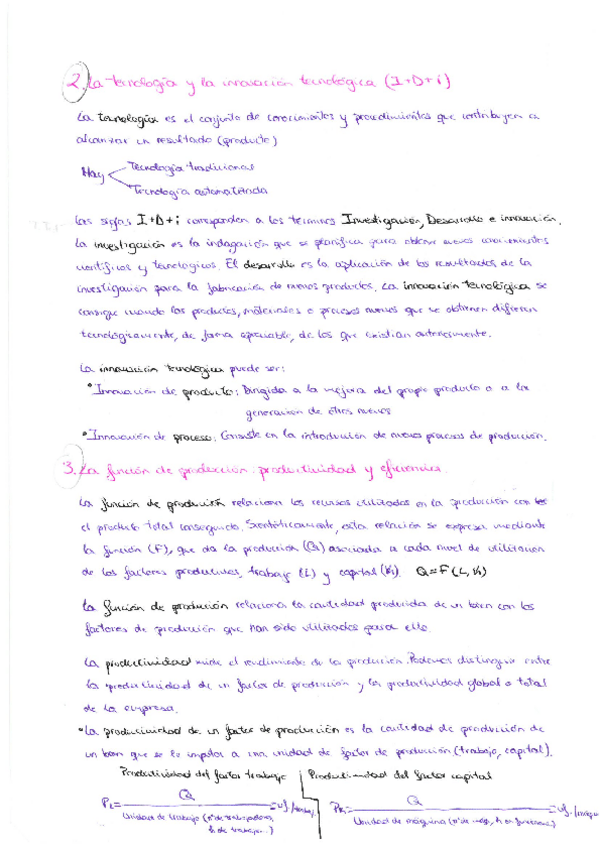 2. La tecnología y la innovación tecnológica (I+D+i)
La tecnología es el conjunto de conocimientos y procedimientos que contribuyen a
alcanzar un resultado (producto)
Hay
Tecnología tradicional
Tecnología automatizada
Las siglas I+D+i corresponden a los términos Investigación, Desarrollo e innovación.
La investigación es la indagación que se planifica para obtener nuevos conocimientos
científicos y tecnológicos. El desarrollo es la aplicación de los resultados de la
investigación para la fabricación de nuevos productos. La innovación tecnológica se
consigue cuando los productos, materiales o procesos nuevos que se obtienen difieren
tecnológicamente, de forma apreciable, de los que existían anteriormente.
La innovación tecnológica puede ser:
• Innovación de producto: Dirigida a la mejora del propio producto o a la
generación de otros nuevos
• Innovación de proceso. Consiste en la introducción de nuevos procesos de producción.
3. La función de producción: productividad y eficiencia
La función de producción relaciona los recursos utilizados en la producción con
el producto total conseguido. Sintéticamente, esta relación se expresa mediante
la función (F), que da la producción (Q) asociada a cada nivel de utilización
de los factores productivos, trabajo (L) y capital (K). Q=F(L,K)
La función de producción relaciona la cantidad producida de un bien con los
factores de producción que han sido utilizados para ello.
La productividad mide el rendimiento de la producción. Podemos distinguir entre
la productividad de un factor de producción y la productividad global o total
de la empresa.
• La productividad de un factor de producción es la cantidad de producción de
un bien que se le imputa a una unidad de factor de producción (trabajo, capital).
Productividad del factor trabajo | Productividad del factor capital
PL= Q / Unidad de trabajo (nº de trabajadores, h de trabajo..)
PK= Q / Unidad de máquina (nº de maq, h